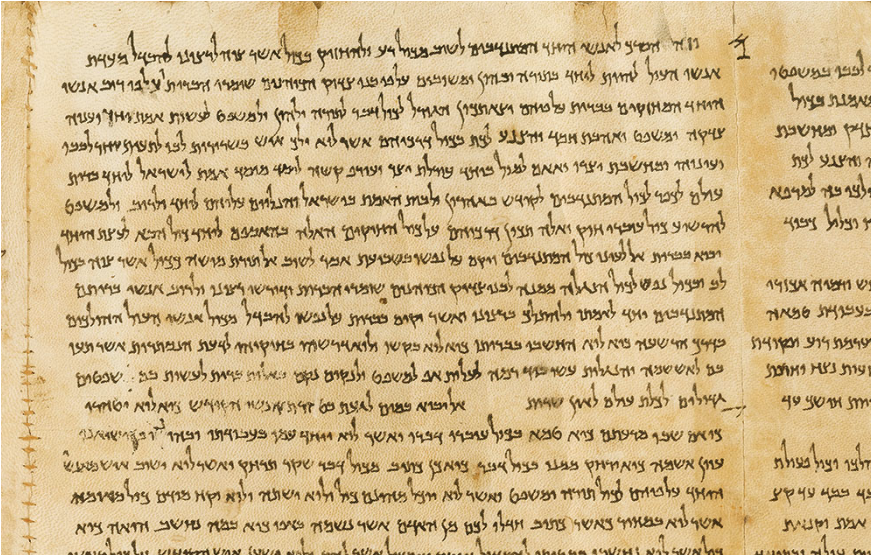 וזה הסרכ לאנשי היחד המתנדבים לשוב מכול רע ולהחזיק בכול אשר צוה לרצונו להבדל מעדת
אנשי העול להיות ליחד בתורה ובהון ומשובים על פי בני צדוק הכוהנים שומרי הברית ועל פי רוב אנשי
היחד המחזקים בברית על פיהם יצא תכון הגורל לכול דבר לתורה ולהון ולמשפט לעשות אמת יחד וענוה
צדקה ומשפט ואהבת חסד והצנע לכת בכול דרכיהם אשר לוא ילך איש בשרירות לבו לתעות אחר לבבו
ועינוהי ומחשבת יצרו יאאם למול ביחד עורלת יצר ועורפ קשה ליסד מוסד אמת לישראל ליחד ברית
עולם לכפר לכול המתנדבים לקודש באהרון ולבית האמת בישראל והנלוים עליהם ליחד ולריב ולמשפט
להרשיע כול עוברי חוק ואלה תכון דרכיהם על כול החוקים האלה בהאספם ליחד כול הבא לעצת היחד
יבוא בברית אל לעיני כול המתנדבים ויקם על נפשו בשבועת אסר לשוב אל תורת מושה ככול אשר צוה בכול
לב ובכול נפש לכול הנגלה ממנה לבני צדוק הכוהנים שומרי הברית ודורשי רצונו ולרוב אנשי בריתם
המתנדבים יחד לאמתו ולהתלכ ברצונו ואשר יקים בברית על נפשו להבדל מכול אנשי העול ההולכים
בדרכ הרשעה כיא לוא החשבו בבריתו כיא לוא בקשו ולוא דרשהו בחוקוהי לדעת הנסתרות אשר תעו
בם לאששמה והנגלות עשו ביד רמה לעלות אפ למשפט ולנקום נקם באלות ברית לעשות בם שפטים
גדולים לכלת עולם לאין שרית אל יבוא במים לגעת בטהרת אנשי הקודש כיא לוא יטהרו
כי אם שבו מרעתם כיא טמא בכול עוברי דברו ואשר לוא ייחד עמו בעבודתו ובהונו
עוון אשמה כיא ירחק ממנו בכול דבר כיא כן כתוב מכול דבר שקר תרחק ואשר לוא ישוב איש מאנשי
היחד על פיהם לכול תורה ומשפט ואשר לוא יוכל מהונם כול ולוא ישתה ולוא יקח מידם כול מאומה
אשר לוא במחיר כאשר כתוב חדלו לכם מן האדם אשר נשמה באפו כיא במה נחשב הואה כיא